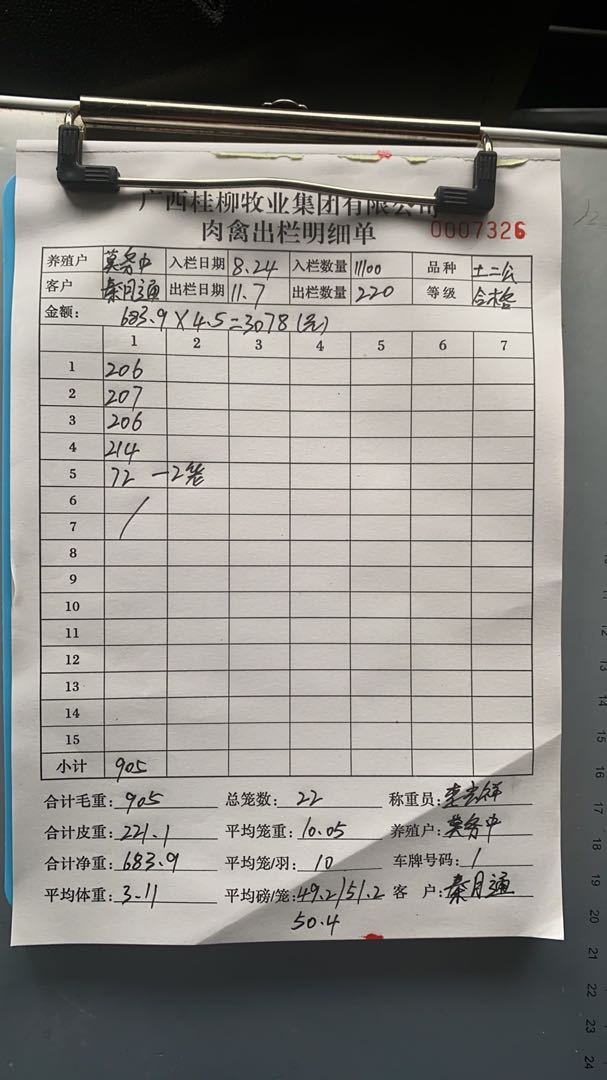 广西桂柳牧业集团有限公司
肉禽出栏明细单
0007326
养殖户 莫务中 入栏日期 8.24 入栏数量 11100 品种 土二公
客户 秦月通 出栏日期 11.7 出栏数量 220 等级 合格
金额: 683.9×4.5=3078(元)
1 2 3 4 5 6 7
1 206
2 207
3 206
4 214
5 72 —2笼
6
7 /
8
9
10
11
12
13
14
15
小计 905
合计毛重: 905 总笼数: 22 称重员:
合计皮重: 221.1 平均笼重: 10.05 养殖户: 莫务中
合计净重: 683.9 平均笼/羽: 10 车牌号码: /
平均体重: 3.11 平均磅/笼: 49.2/51.2 客 户: 秦月通
50.4
16
17
18
19
20
21
22
23
24